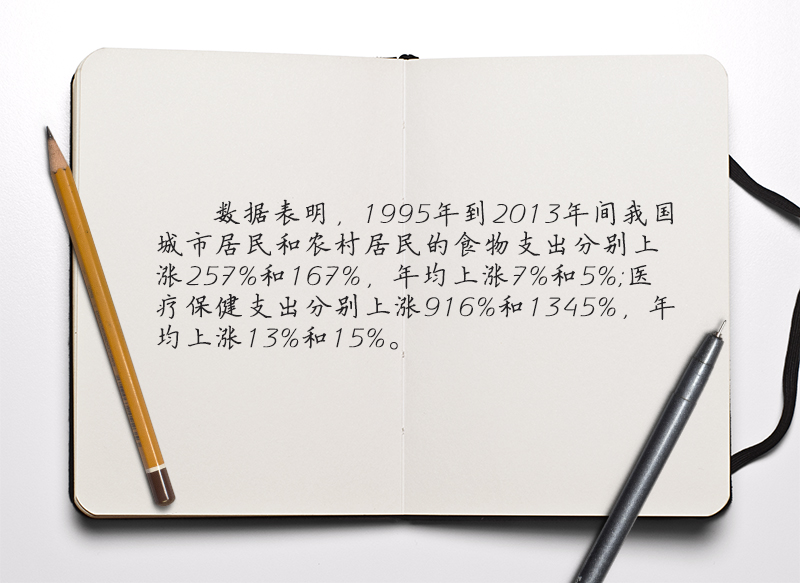 数据表明，1995年到2013年间我国
城市居民和农村居民的食物支出分别上
涨257%和167%，年均上涨7%和5%;医
疗保健支出分别上涨916%和1345%，年
均上涨13%和15%。